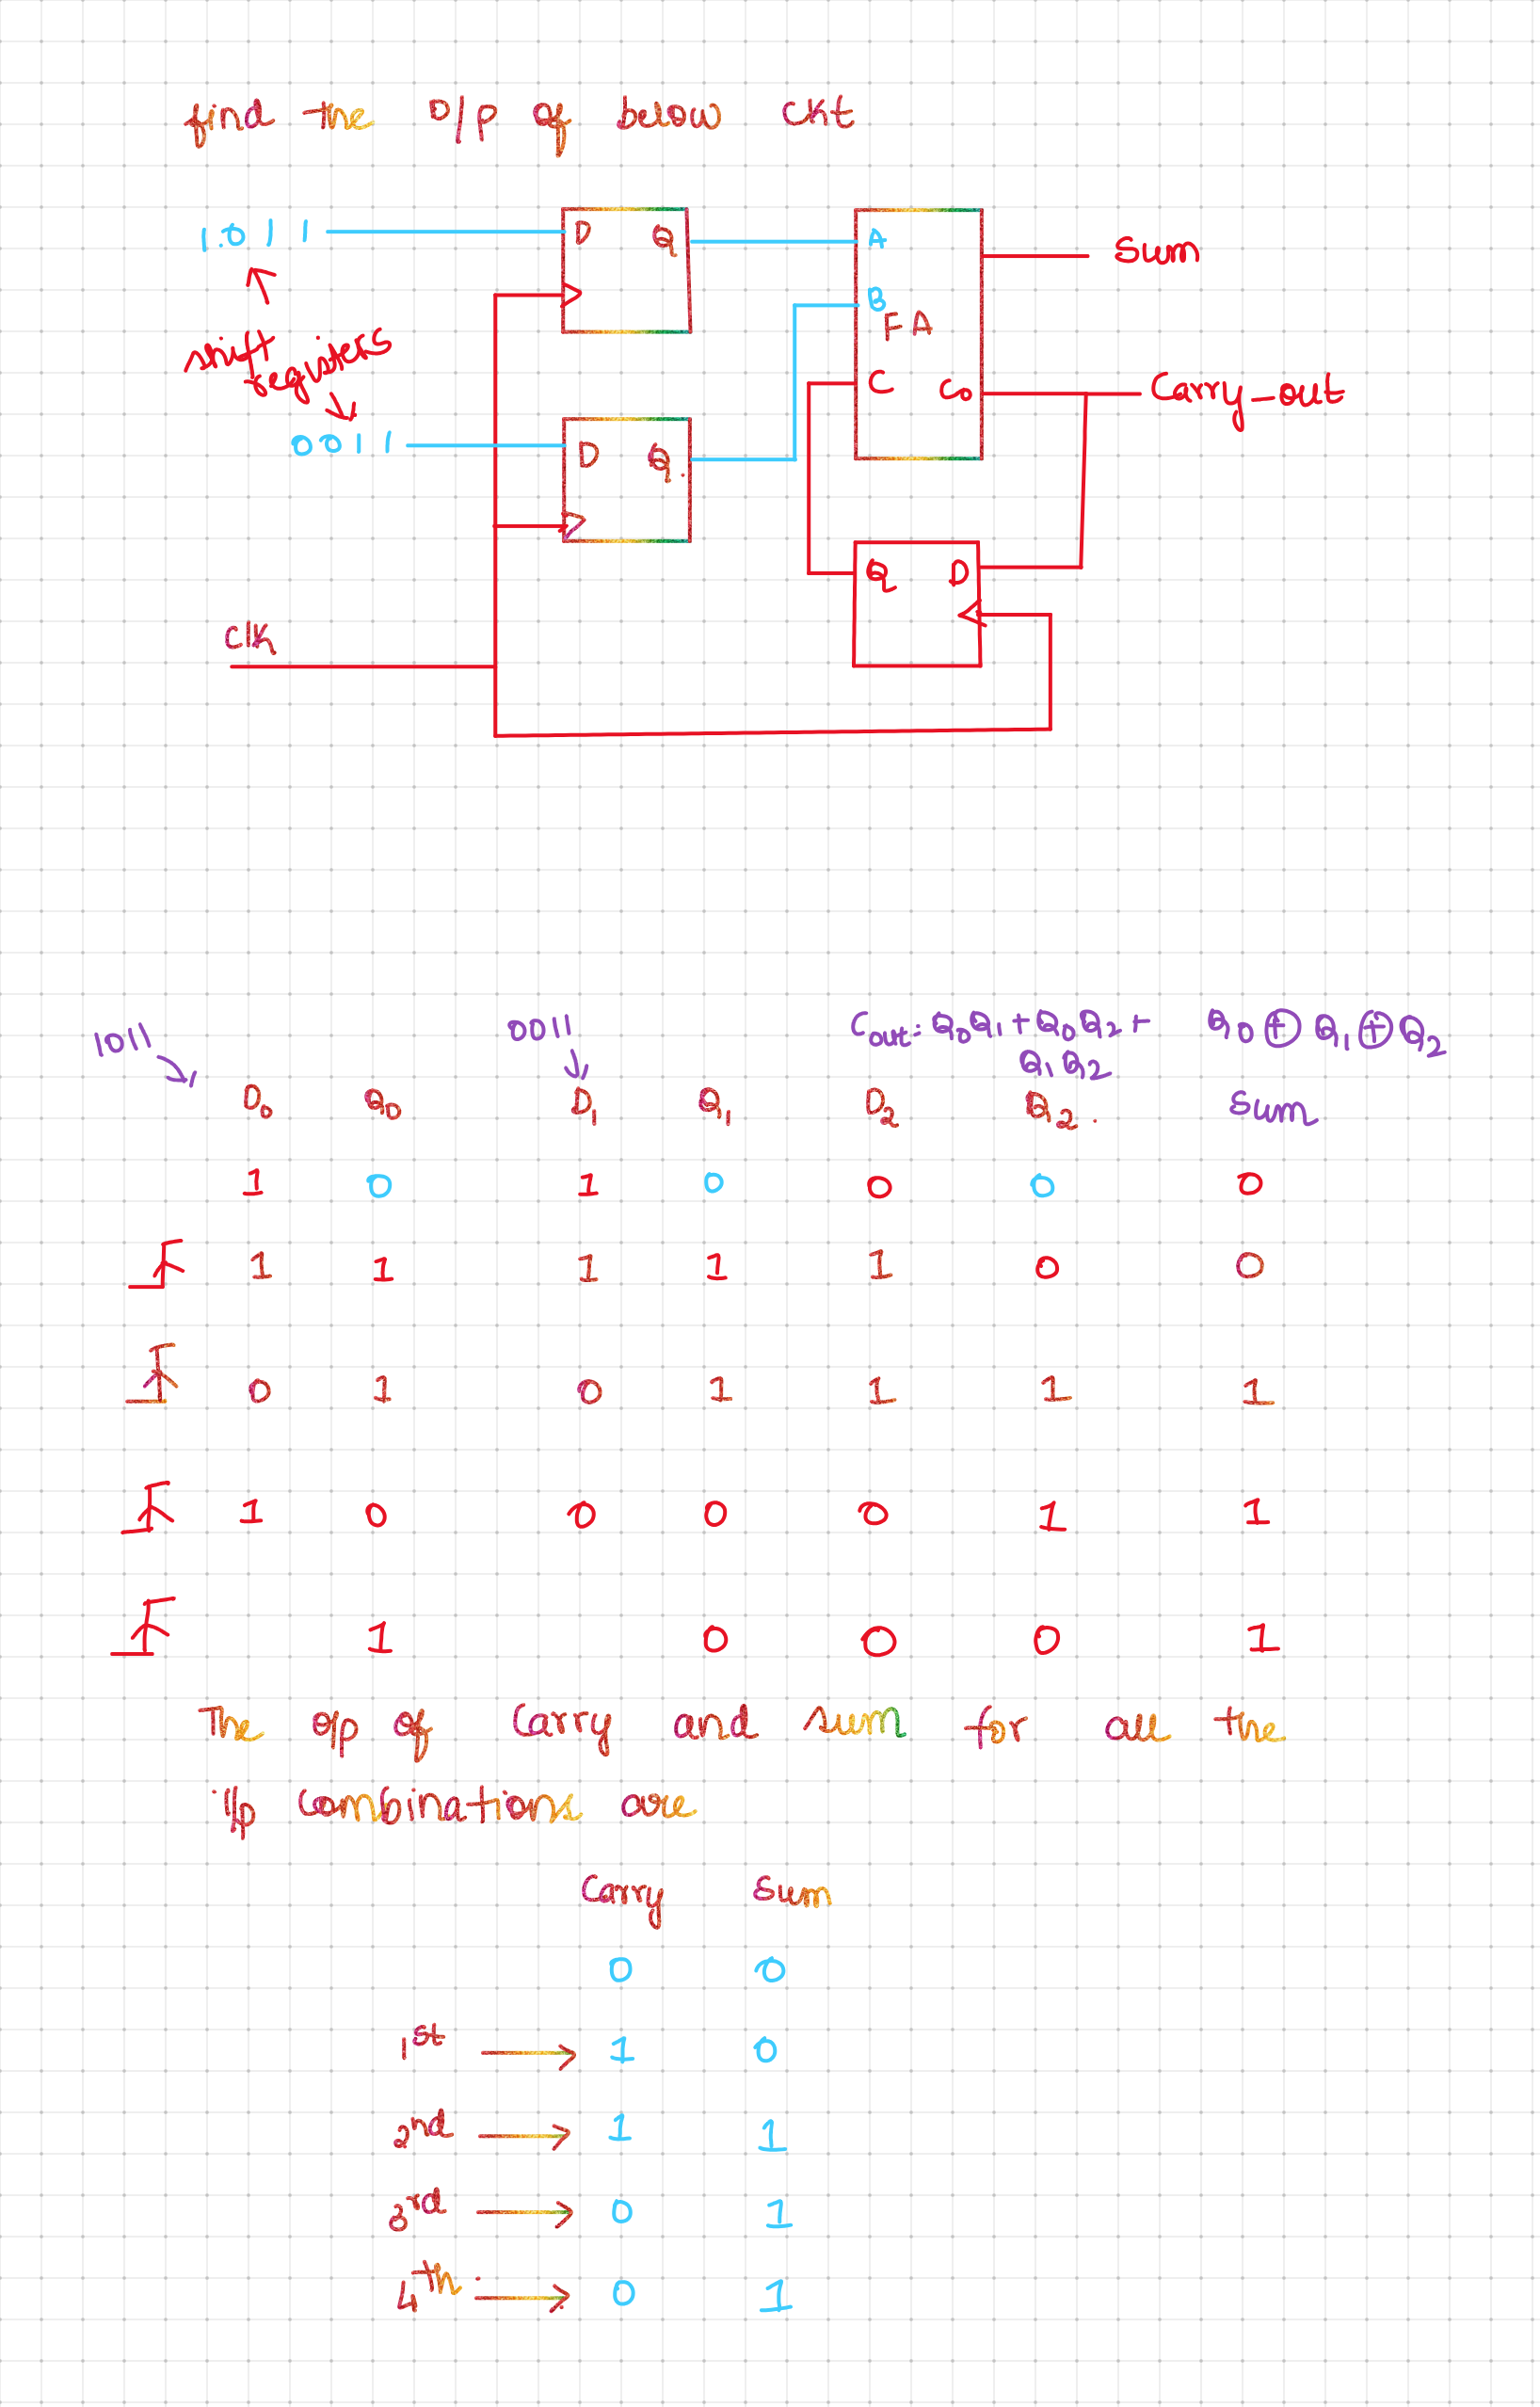 find the O/P of below ckt
1.011 D Q A Sum
B
shift registers FA
C Co Carry_out
0011 D Q.
Q D
Clk
1011 0011 Cout: Q0Q1+Q0Q2+ Q0⊕Q1⊕Q2
Q1Q2
D0 Q0 D1 Q1 D2 Q2. Sum
1 0 1 0 0 0 0
1 1 1 1 1 0 0
0 1 0 1 1 1 1
1 0 0 0 0 1 1
1 0 0 0 1
The o/p of Carry and sum for all the
i/p combinations are
Carry Sum
0 0
1st → 1 0
2nd → 1 1
3rd → 0 1
4th → 0 1